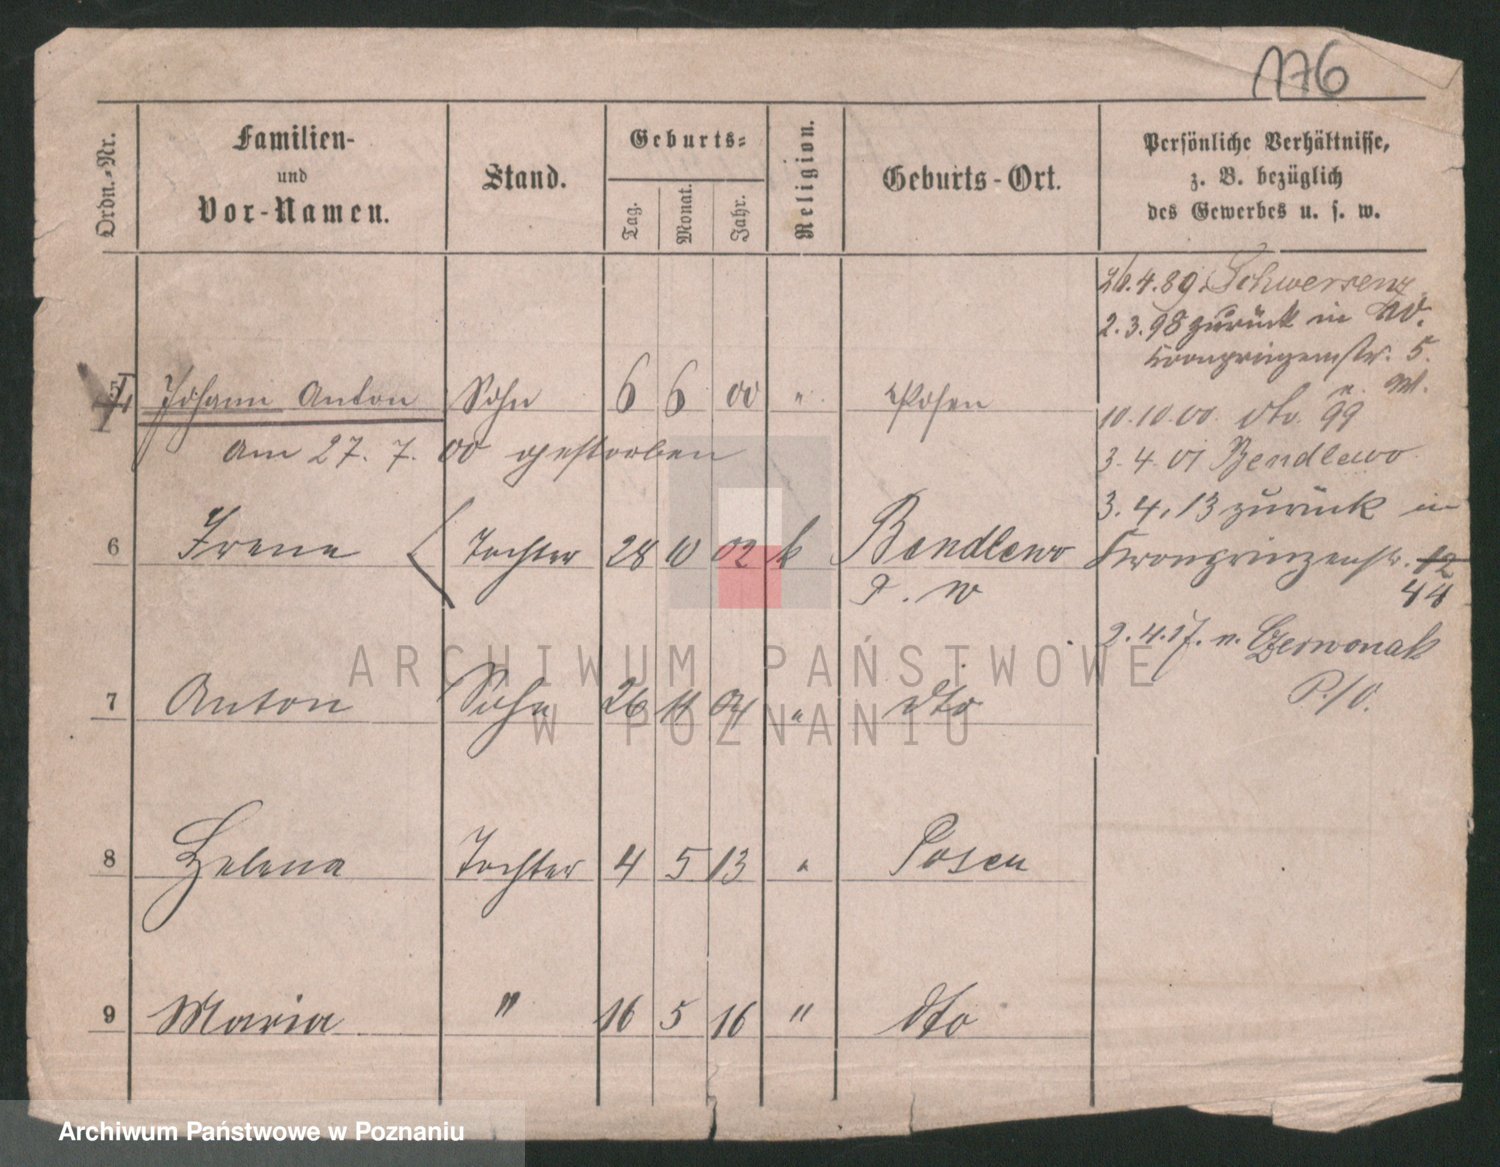 176
Ordn.-Nr.
Familien-
und
Vor-Namen.
Stand.
Geburts-
Tag.
Monat.
Jahr.
Religion.
Geburts-Ort.
Persönliche Verhältnisse,
z. B. bezüglich
des Gewerbes u. s. w.
4.89. Schwersenz
2.3.98 zurück in
Kronprinzenstr. 5.
10.10.00. dto. 99
3.4.01 Bendlewo
3.4.13 zurück in
Kronprinzenstr. 12
44
2.4.17. n. Czerwonak
P/O.
5 Johann Anton Sohn 6 6 00 " Posen
am 27.7.00 gestorben
6 Irene Tochter 28 10 02 k Bendlewo
P. W
7 Anton Sohn 26 11 04 " dto
8 Helena Tochter 4 5 13 " Posen
9 Maria " 16 5 16 " dto
ARCHIWUM PAŃSTWOWE
W POZNANIU
Archiwum Państwowe w Poznaniu